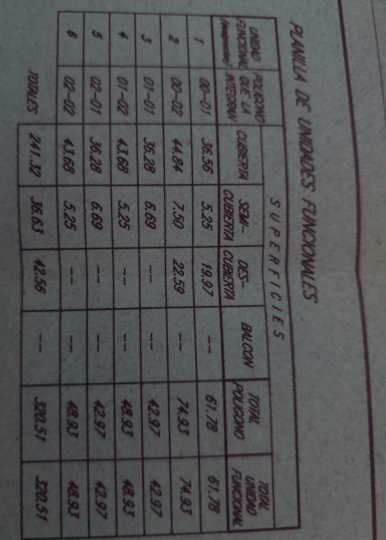 PLANILLA DE UNIDADES FUNCIONALES
UNIDAD FUNCIONAL POLIGONO QUE LA INTEGRAN SUPERFICIES
CUBIERTA SEMI-CUBIERTA DES-CUBIERTA BALCON TOTAL POLIGONO TOTAL UNIDAD FUNCIONAL
1 00-01 36.56 5.25 19.97 -- 61.78 61.78
2 00-02 44.84 7.50 22.59 -- 74.93 74.93
3 01-01 36.28 6.69 -- -- 42.97 42.97
4 01-02 43.68 5.25 -- -- 48.93 48.93
5 02-01 36.28 6.69 -- -- 42.97 42.97
6 02-02 43.68 5.25 -- -- 48.93 48.93
TOTALES 241.32 36.63 42.56 -- 320.51 320.51